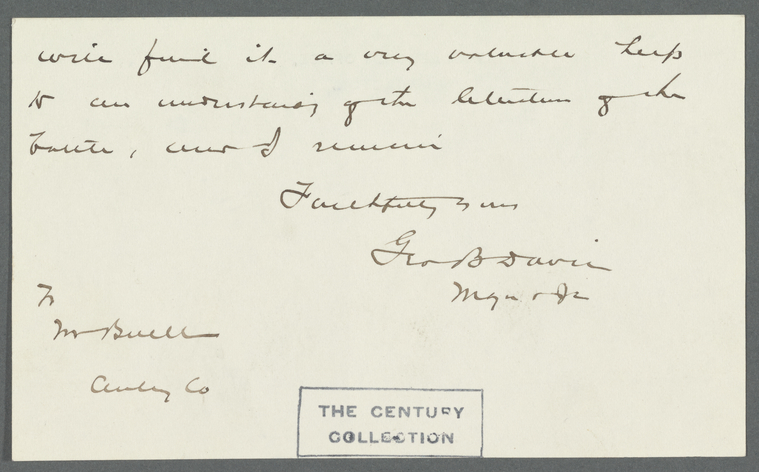 will find it a very valuable help
to an understanding of the literature of the
battle, and I remain
Faithfully yours
Geo B Davis
Major & Ja
To
Mr Buell
Century Co
THE CENTURY
COLLECTION